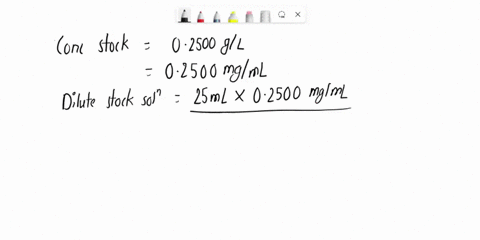 Conc stock = 0.2500 g/L
= 0.2500 mg/mL
Dilute stock solⁿ = 25mL × 0.2500 mg/mL